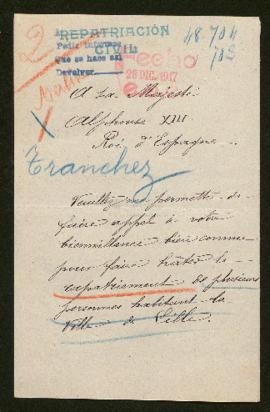 REPATRIACIÓN
CIVIL
48.704
702
2
Pedir informes
que se hace así
Devolver
Hecho
26 DIC. 1917
A sa Majesté
Alphonse XIII
Roi d'Espagne.
Tranchez
Veuillez me permettre de
faire appel à votre
bienveillance bien connue
pour faire hâter le
rapatriement de plusieurs
personnes habitant la
ville de Lille.